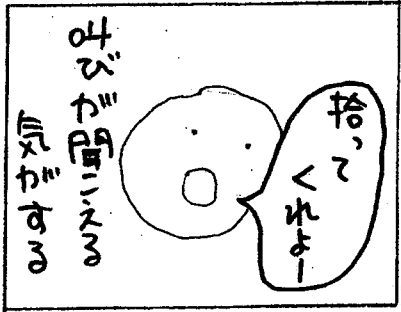 拾って
くれよー
叫びが聞こえる
気がする